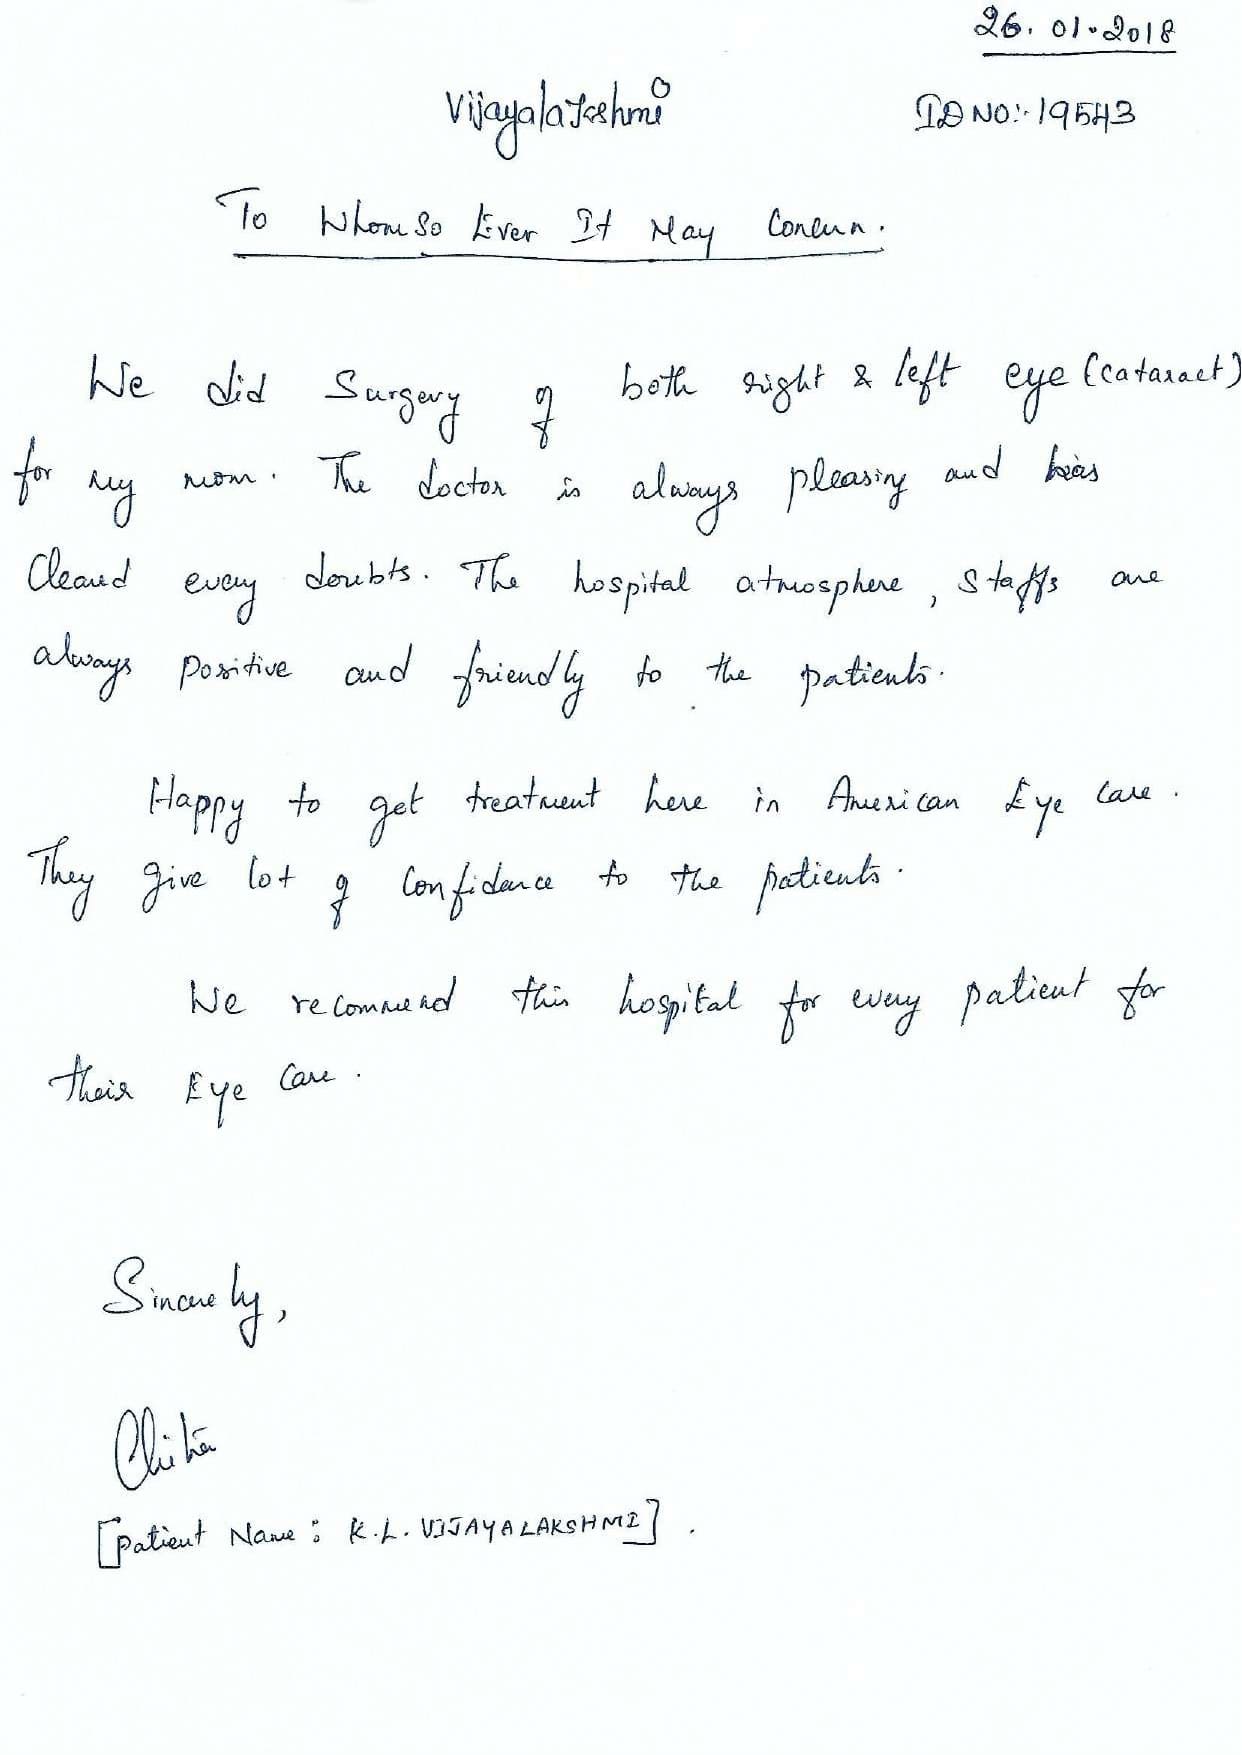 26.01.2018
Vijayalakshmi ID NO:- 19543
To Whom So Ever It May Concern.
We did Surgery of both right & left eye (cataract)
for my mom. The doctor is always pleasing and has
Cleared every doubts. The hospital atmosphere, Staffs are
always positive and friendly to the patients.
Happy to get treatment here in American Eye Care.
They give lot of Confidence to the patients.
We recommend this hospital for every patient for
their Eye Care.
Sincerely,
[Patient Name: K.L. VIJAYALAKSHMI].